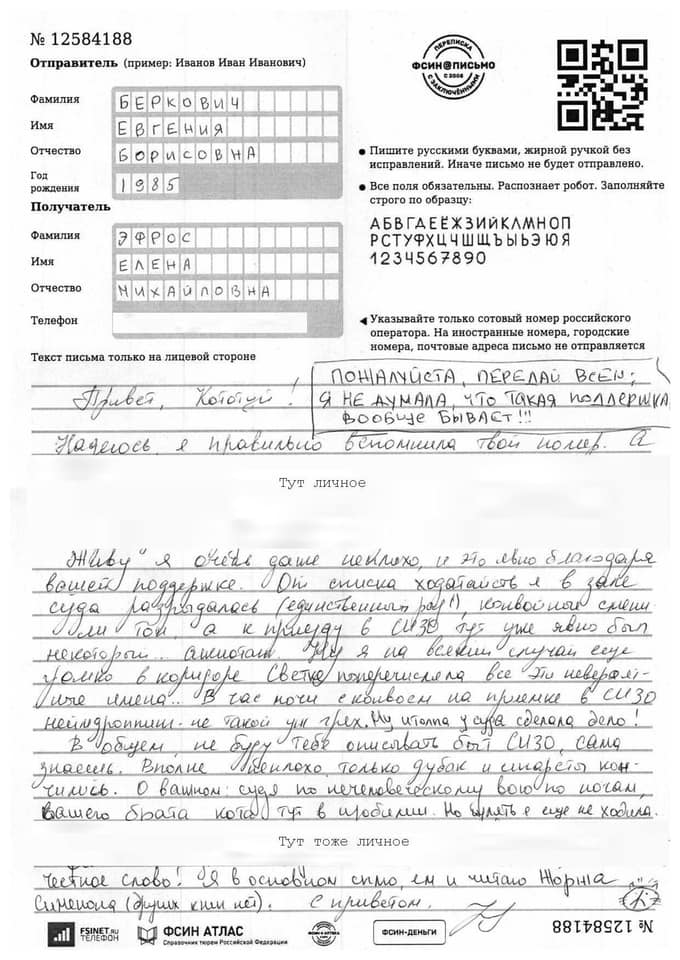 № 12584188
Отправитель (пример: Иванов Иван Иванович)
Фамилия БЕРКОВИЧ
Имя ЕВГЕНИЯ
Отчество БОРИСОВНА
Год рождения 1985
Получатель
Фамилия ЭФРОС
Имя ЕЛЕНА
Отчество МИХАЙЛОВНА
Телефон
ПЕРЕПИСКА
ФСИН@ПИСЬМО
С 2006
С ЗАКЛЮЧЁННЫМИ
● Пишите русскими буквами, жирной ручкой без
исправлений. Иначе письмо не будет отправлено.
● Все поля обязательны. Распознает робот. Заполняйте
строго по образцу:
АБВГДЕЁЖЗИЙКЛМНОП
РСТУФХЦЧШЩЪЫЬЭЮЯ
1234567890
◄ Указывайте только сотовый номер российского
оператора. На иностранные номера, городские
номера, почтовые адреса письмо не отправляется
Текст письма только на лицевой стороне
Привет, !
ПОЖАЛУЙСТА, ПЕРЕДАЙ ВСЕМ:
Я НЕ ДУМАЛА, ЧТО ТАКАЯ ПОДДЕРЖКА
ВООБЩЕ БЫВАЕТ!!!
Надеюсь, я правильно вспомнила твой номер. А
Тут личное
"Живу" я очень даже неплохо, и это явно благодаря
вашей поддержке. От списка ходатайств я в зале
суда разрыдалась (единственный раз!), конвойные смени-
ли тон, а к приезду в СИЗО тут уже явно был
некоторый... ажиотаж. Ну я на всякий случай еще
громко в коридоре Светке поперечисляла все эти невероят-
ные имена... В час ночи с конвоем на приемке в СИЗО
неймдроппинг - не такой уж грех. Ну и толпа у суда сделала дело!
В общем, не буду тебе описывать быт СИЗО, сама
знаешь. Вполне неплохо, только дубак и сигареты кон-
чились. О важном: судя по нечеловеческому вою по ночам,
вашего брата кота тут в изобилии. Но гулять я еще не ходила.
Тут тоже личное
Честное слово! Я в основном сплю, ем и читаю Жоржа
Сименона (других книг нет). С приветом.
FSINET.RU
ТЕЛЕФОН
ФСИН АТЛАС
Справочник тюрем Российской Федерации
ФСИН-ДЕНЬГИ
№ 12584188